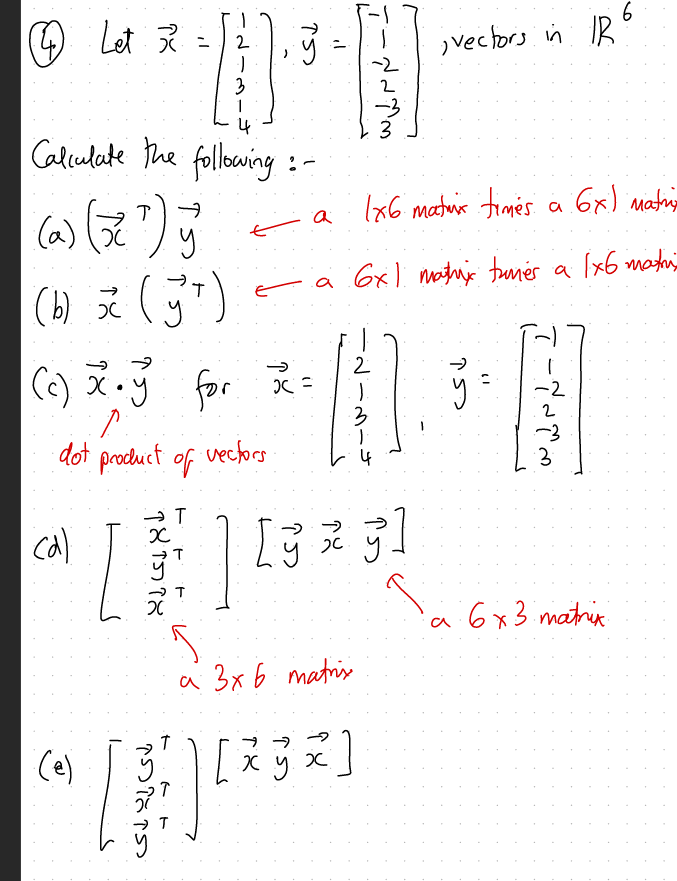 ④ Let x⃗ = [1 2 1 3 1 4], y⃗ = [-1 1 -2 2 -3 3], vectors in ℝ⁶
Calculate the following :-
(a) (x⃗ᵀ) y⃗ ← a 1x6 matrix times a 6x1 matrix
(b) x⃗ (y⃗ᵀ) ← a 6x1 matrix times a 1x6 matrix
(c) x⃗ • y⃗ for x⃗ = [1 2 1 3 1 4], y⃗ = [-1 1 -2 2 -3 3]
dot product of vectors
(d) [x⃗ᵀ y⃗ᵀ x⃗ᵀ] [y⃗ x⃗ y⃗]
a 6x3 matrix
a 3x6 matrix
(e) [y⃗ᵀ x⃗ᵀ y⃗ᵀ] [x⃗ y⃗ x⃗]